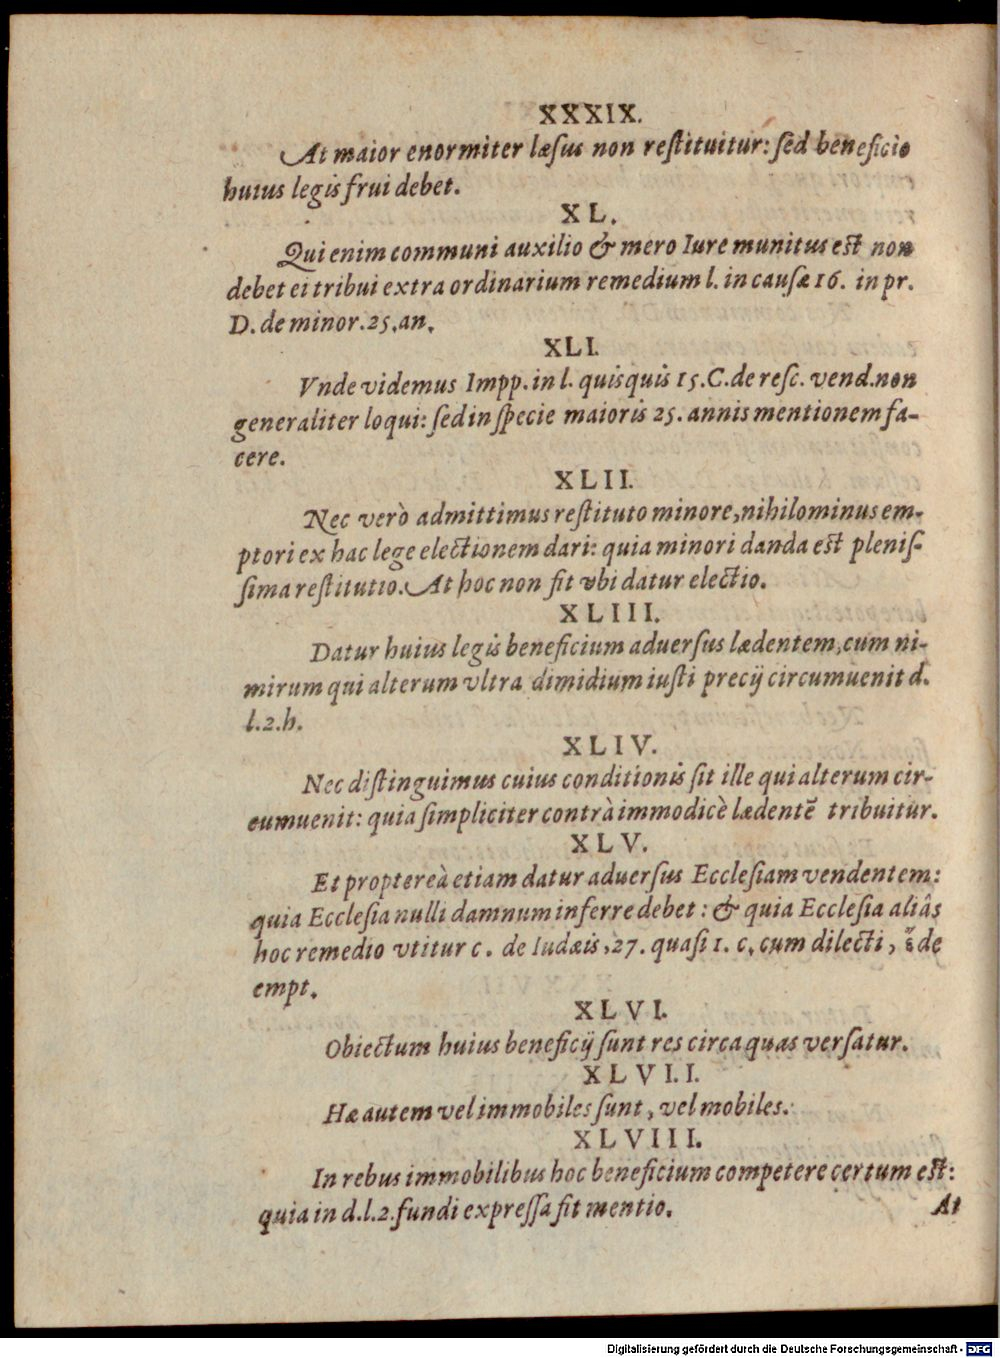 XXXIX.
At maior enormiter læsus non reſtituitur: ſed beneficio
huius legis frui debet.
XL.
Qui enim communi auxilio & mero Iure munitus eſt non
debet ei tribui extra ordinarium remedium l. in cauſæ 16. in pr.
D. de minor. 25. an.
XLI.
Vnde videmus Impp. in l. quisquis 15. C. de reſc. vend. non
generaliter loqui: ſed in ſpecie maioris 25. annis mentionem fa-
cere.
XLII.
Nec verò admittimus reſtituto minore, nihilominus em-
ptori ex hac lege electionem dari: quia minori danda eſt pleniſ-
ſima reſtitutio. At hoc non fit vbi datur electio.
XLIII.
Datur huius legis beneficium aduerſus lædentem, cum ni-
mirum qui alterum vltra dimidium iuſti precij circumuenit d.
l. 2. h.
XLIV.
Nec diſtinguimus cuius conditionis ſit ille qui alterum cir-
cumuenit: quia ſimpliciter contrà immodicè lædentẽ tribuitur.
XLV.
Et proptereà etiam datur aduerſus Eccleſiam vendentem:
quia Eccleſia nulli damnum inferre debet: & quia Eccleſia aliâs
hoc remedio vtitur c. de Iudæis, 27. quaſi 1. c. cum dilecti, de
empt.
XLVI.
Obiectum huius beneficij ſunt res circa quas verſatur.
XLVII.
Hæ autem vel immobiles ſunt, vel mobiles.
XLVIII.
In rebus immobilibus hoc beneficium competere certum eſt:
quia in d. l. 2. fundi expreſſa fit mentio.
At
Digitalisierung gefördert durch die Deutsche Forschungsgemeinschaft - DFG